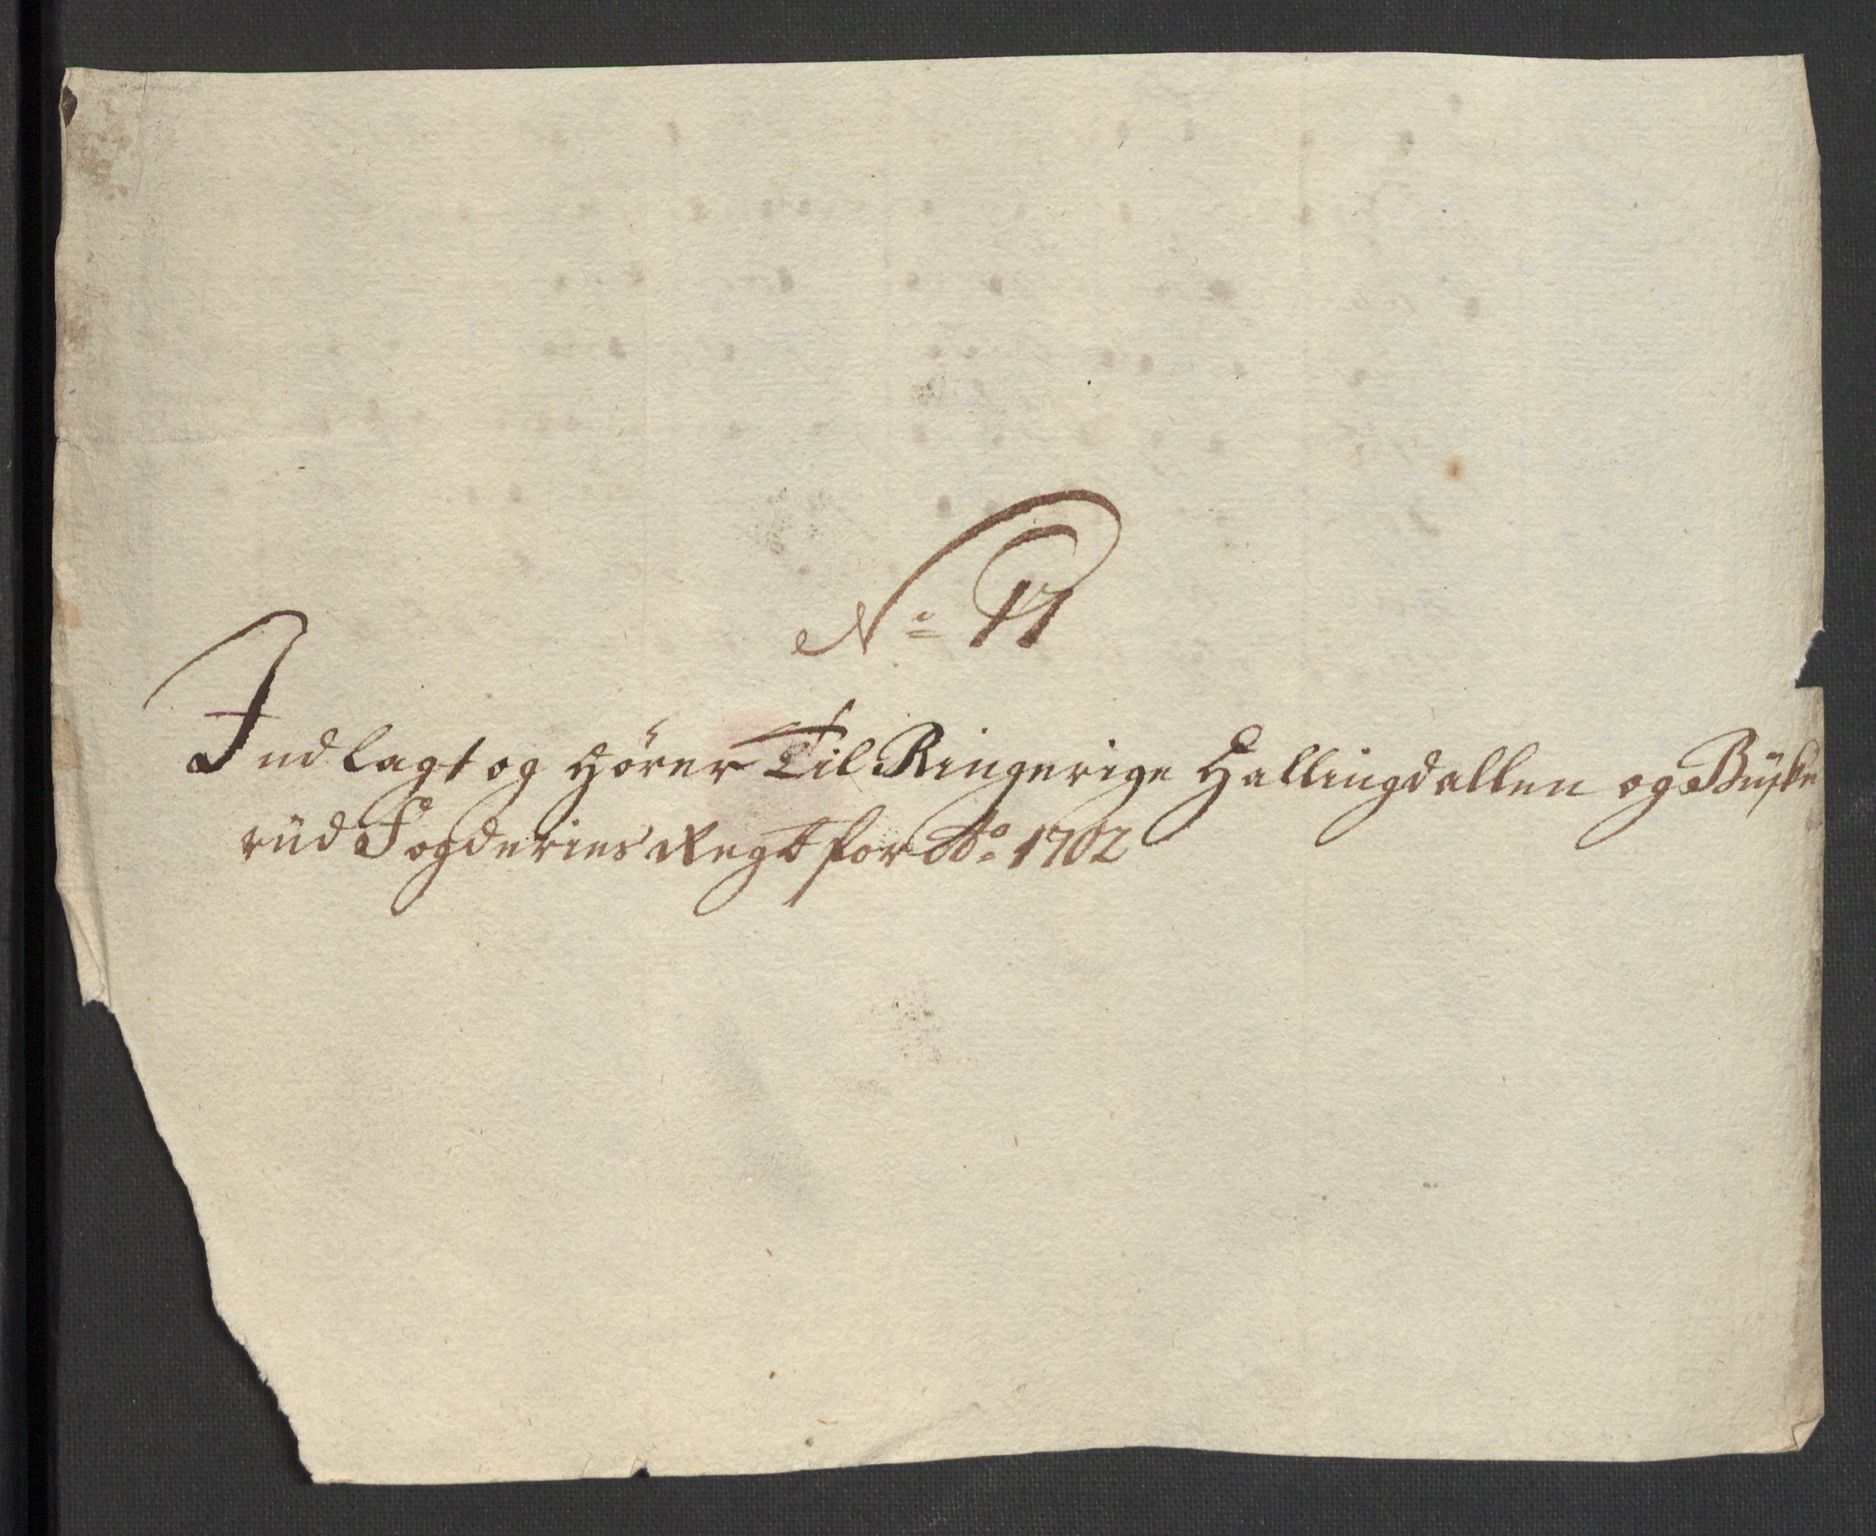 No 17
Indlagt og Hörer Til Ringerige Hallingdallen og Büske
rüd Fogderies Regt for Ao 1702